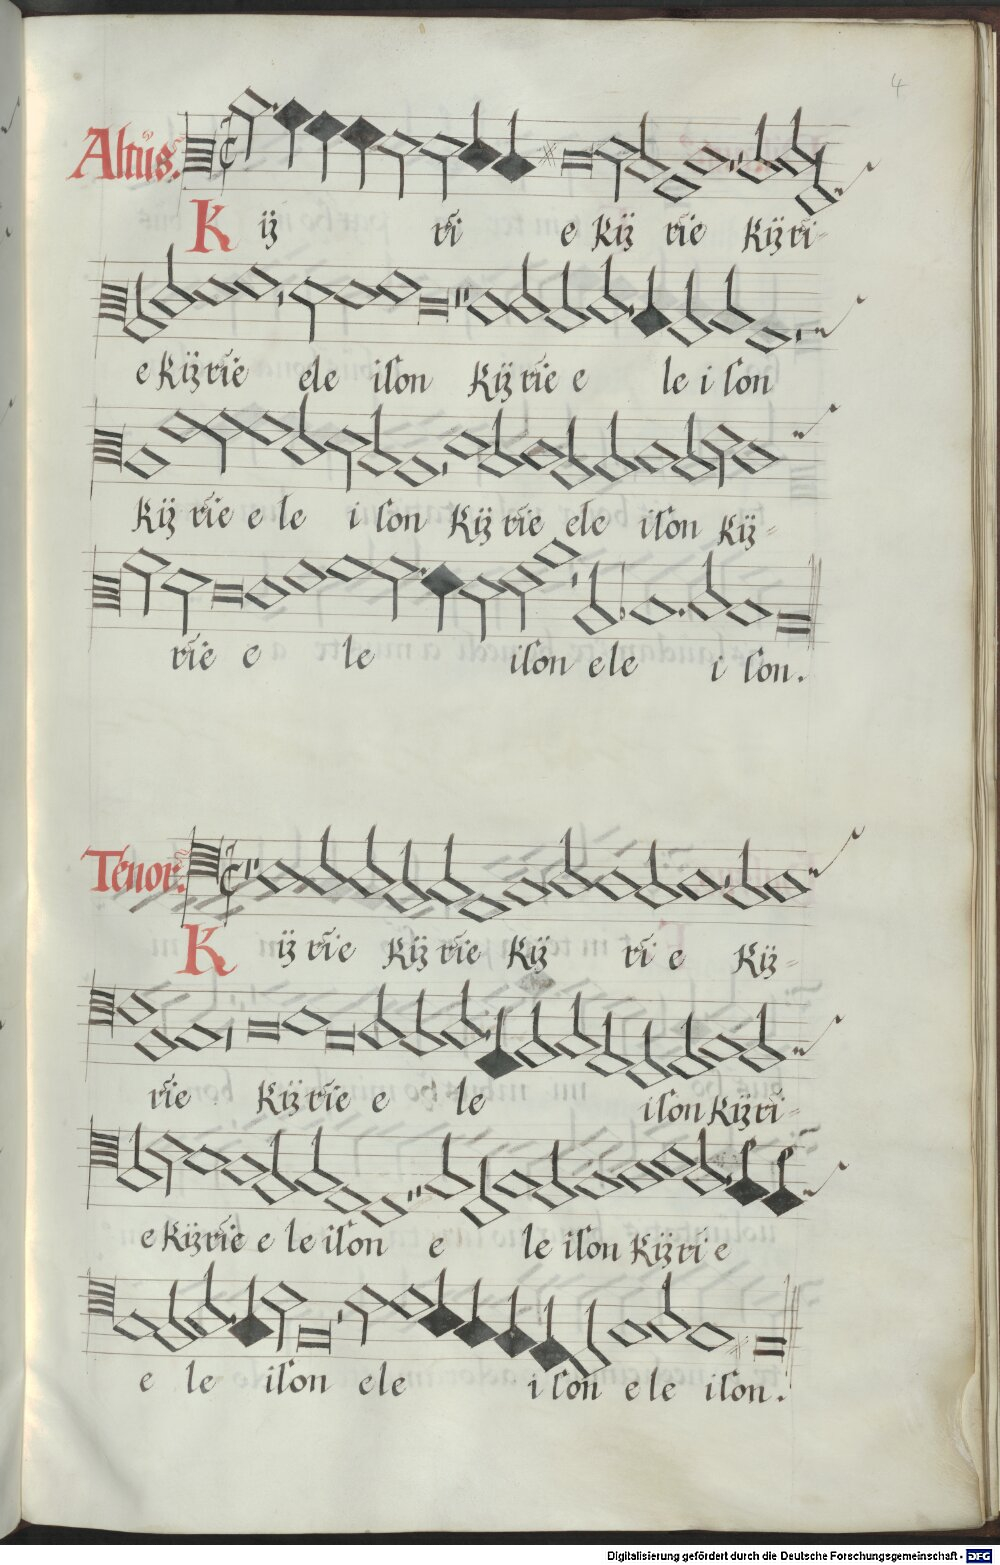 4
Altus.
Kÿ ri e Kÿ rie Kÿ ri-
e Kÿrie ele ison Kÿ rie e le i son
Kÿ rie e le i son Kÿ rie ele ison Kÿ-
rie e le ison ele i son.
Tenor.
Kÿ rie Kÿ rie Kÿ ri e Kÿ-
rie Kÿ rie e le ison Kÿri-
e Kÿrie e le ison e le ison Kÿri e
e le ison ele i son ele ison.
Digitalisierung gefördert durch die Deutsche Forschungsgemeinschaft - DFG